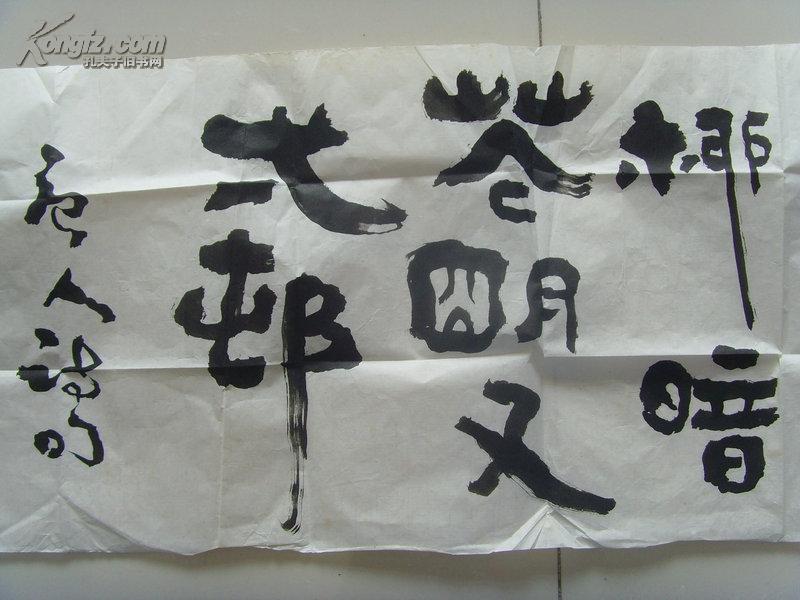 Kongfz.com
孔夫子旧书网
柳暗
花明又
弌邨
人诗句